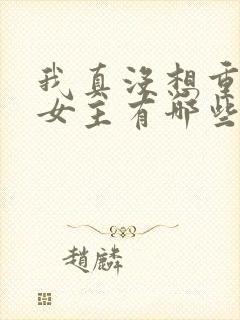 我真没想重
女主有哪些
趙麟